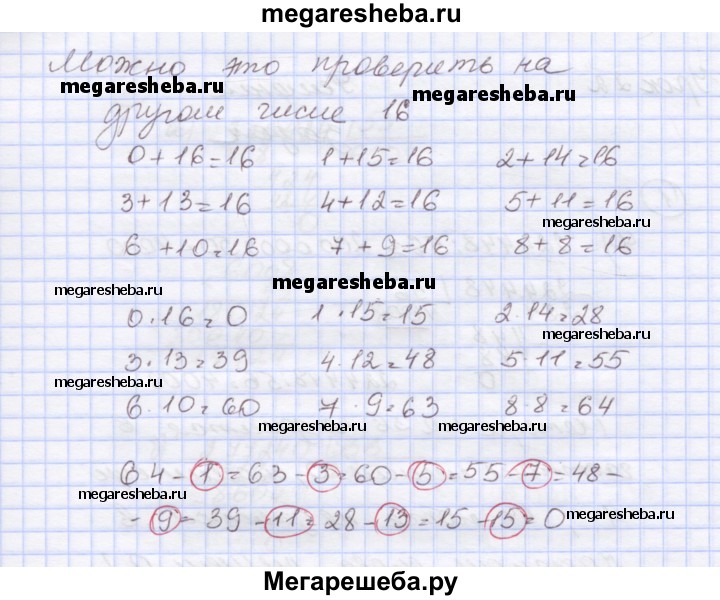 megaresheba.ru
Можно это проверить на
megaresheba.ru
megaresheba.ru
другом числе 16
0+16=16 1+15=16 2+14=16
3+13=16 4+12=16 5+11=16
megaresheba.ru
6+10=16 7+9=16 8+8=16
megaresheba.ru megaresheba.ru
0·16=0 1·15=15 2·14=28
megaresheba.ru
3·13=39 4·12=48 5·11=55
megaresheba.ru
6·10=60 7·9=63 8·8=64
megaresheba.ru megaresheba.ru
64-1=63-3=60-5=55-7=48-
megaresheba.ru
-9=39-11=28-13=15-15=0
megaresheba.ru
Мегарешеба.ру